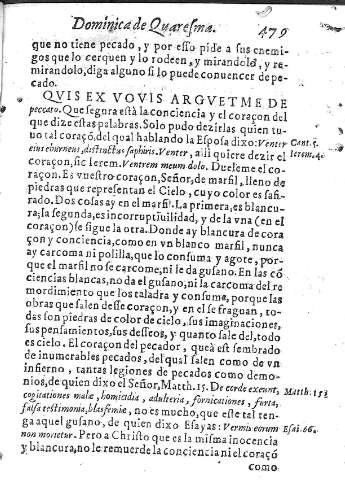 Dominica de Quaresma. 479
que no tiene pecado, y por esso pide a sus enemi-
gos que lo cerquen y lo rodeen, y mirandolo, y re-
mirandolo, diga alguno si lo puede conuencer de pe-
cado.
QVIS EX VOVIS ARGVET ME DE
peccato. Que segura està la conciencia y el coraçon del
que dize estas palabras. Solo pudo dezirlas quien tu-
uo tal coraçõ, del qual hablando la Esposa dixo: Venter Cant. 5.
eius eburneus, distinctus saphiris. Venter, alli quiere dezir el Ierem. 4.
coraçon, sic Ierem. Ventrem meum dolo. Dueleme el co-
raçon. Es vuestro coraçon, Señor, de marfil, lleno de
piedras que representan el Cielo, cuyo color es safi-
rado. Dos cosas ay en el marfil. La primera, es blancu-
ra; la segunda, es incorruptiuilidad, y de la vna (en el
coraçon) se sigue la otra. Donde ay blancura de cora
çon y conciencia, como en vn blanco marfil, nunca
ay carcoma ni polilla, que lo consuma y agore, por-
que el marfil no se carcome, ni le da gusano. En las cõ
ciencias blancas, no da el gusano, ni la carcoma del re
mordimiento que los taladra y consume, porque las
obras que salen desse coraçon, y en el se fraguan, to-
das son piedras de color de cielo, sus imaginaciones,
sus pensamientos, sus desseos, y quanto sale del, todo
es cielo. El coraçon del pecador, que à est sembrado
de inumerables pecados, del qual salen como de vn
infierno, tantas legiones de pecados como demo-
nios, de quien dixo el Señor, Matth. 15. De corde exeunt, Matth. 15.
cogitationes malæ, homicidia, adulteria, fornicationes, furta,
falsa testimonia, blasfemiæ, no es mucho, que este tal ten-
ga aquel gusano, de quien dixo Esayas: Vermis eorum Esai. 66.
non morietur. Pero a Christo que es la misma inocencia
y blancura, no le remuerde la conciencia ni el coraçõ
como